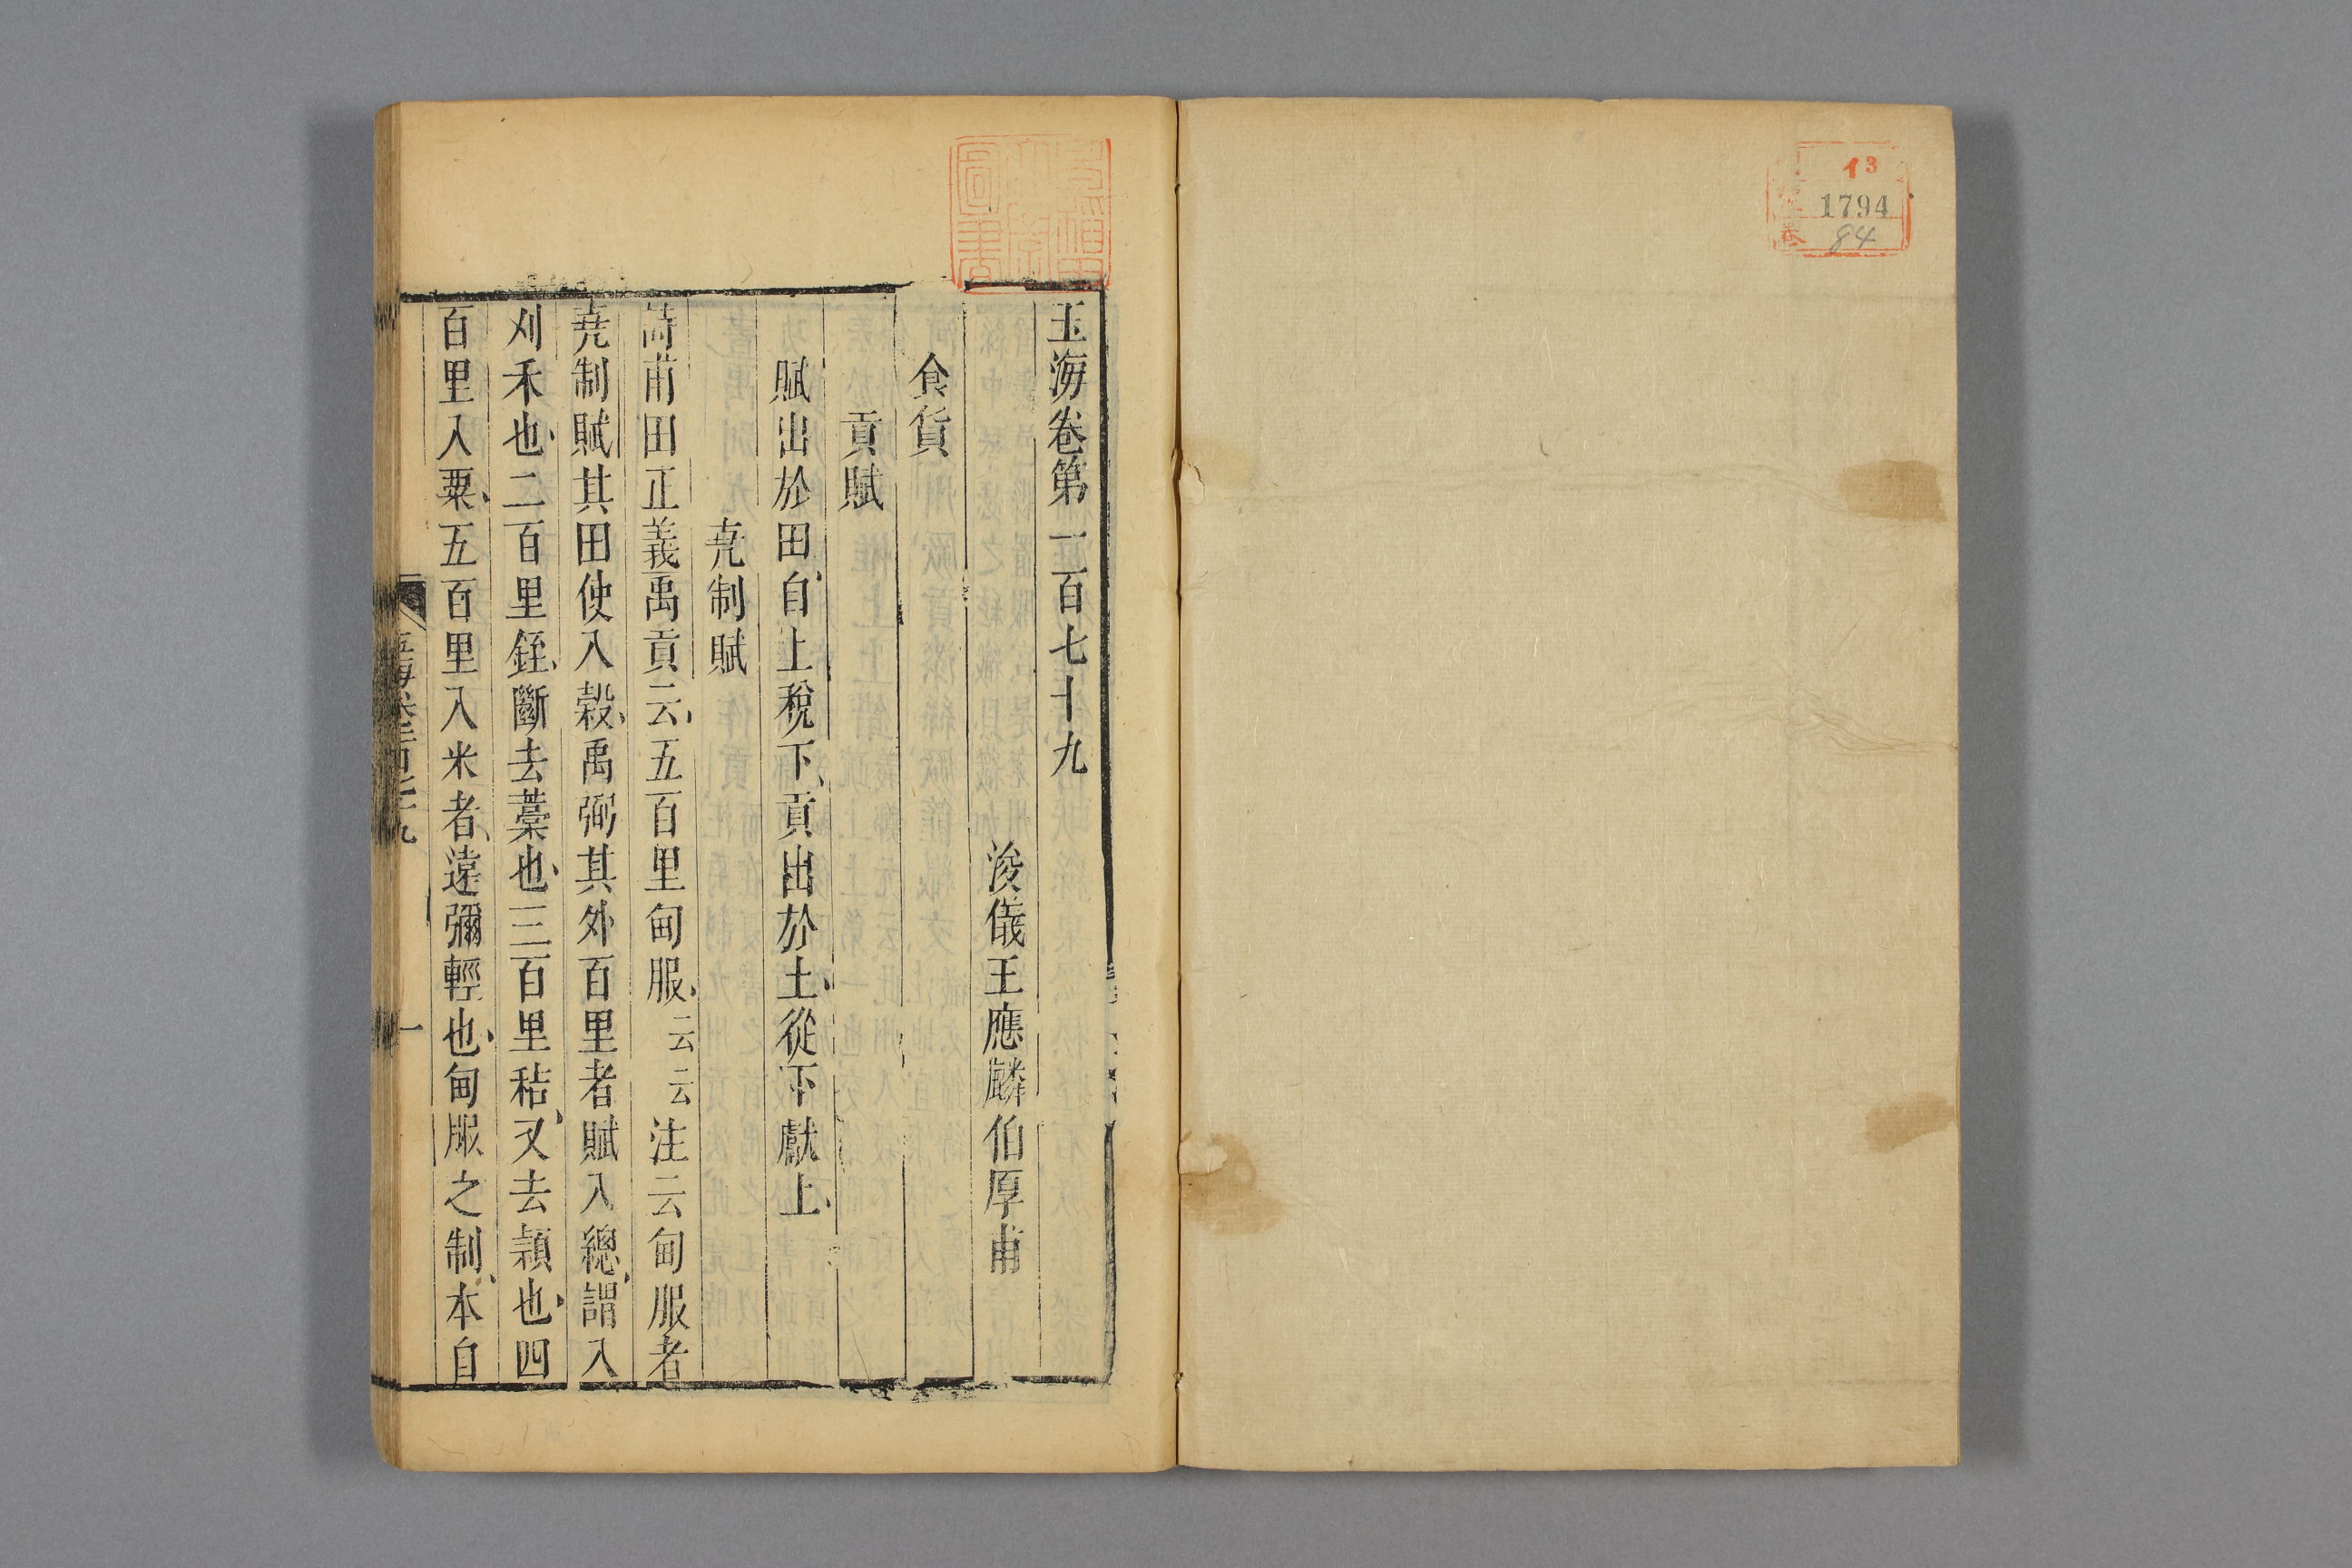 13
1794
84
玉海卷第一百七十九
浚儀王應麟伯厚甫
食貨
貢賦
賦出於田自上稅下貢出於土從下獻上
堯制賦
詩甫田正義禹貢云五百里甸服云云注云甸服者
堯制賦其田使入穀禹弼其外百里者賦入總謂入
刈禾也二百里銍斷去藁也三百里秸又去頴也四
百里入粟五百里入米者遠彌輕也甸服之制本自
玉海卷一百七十九
一